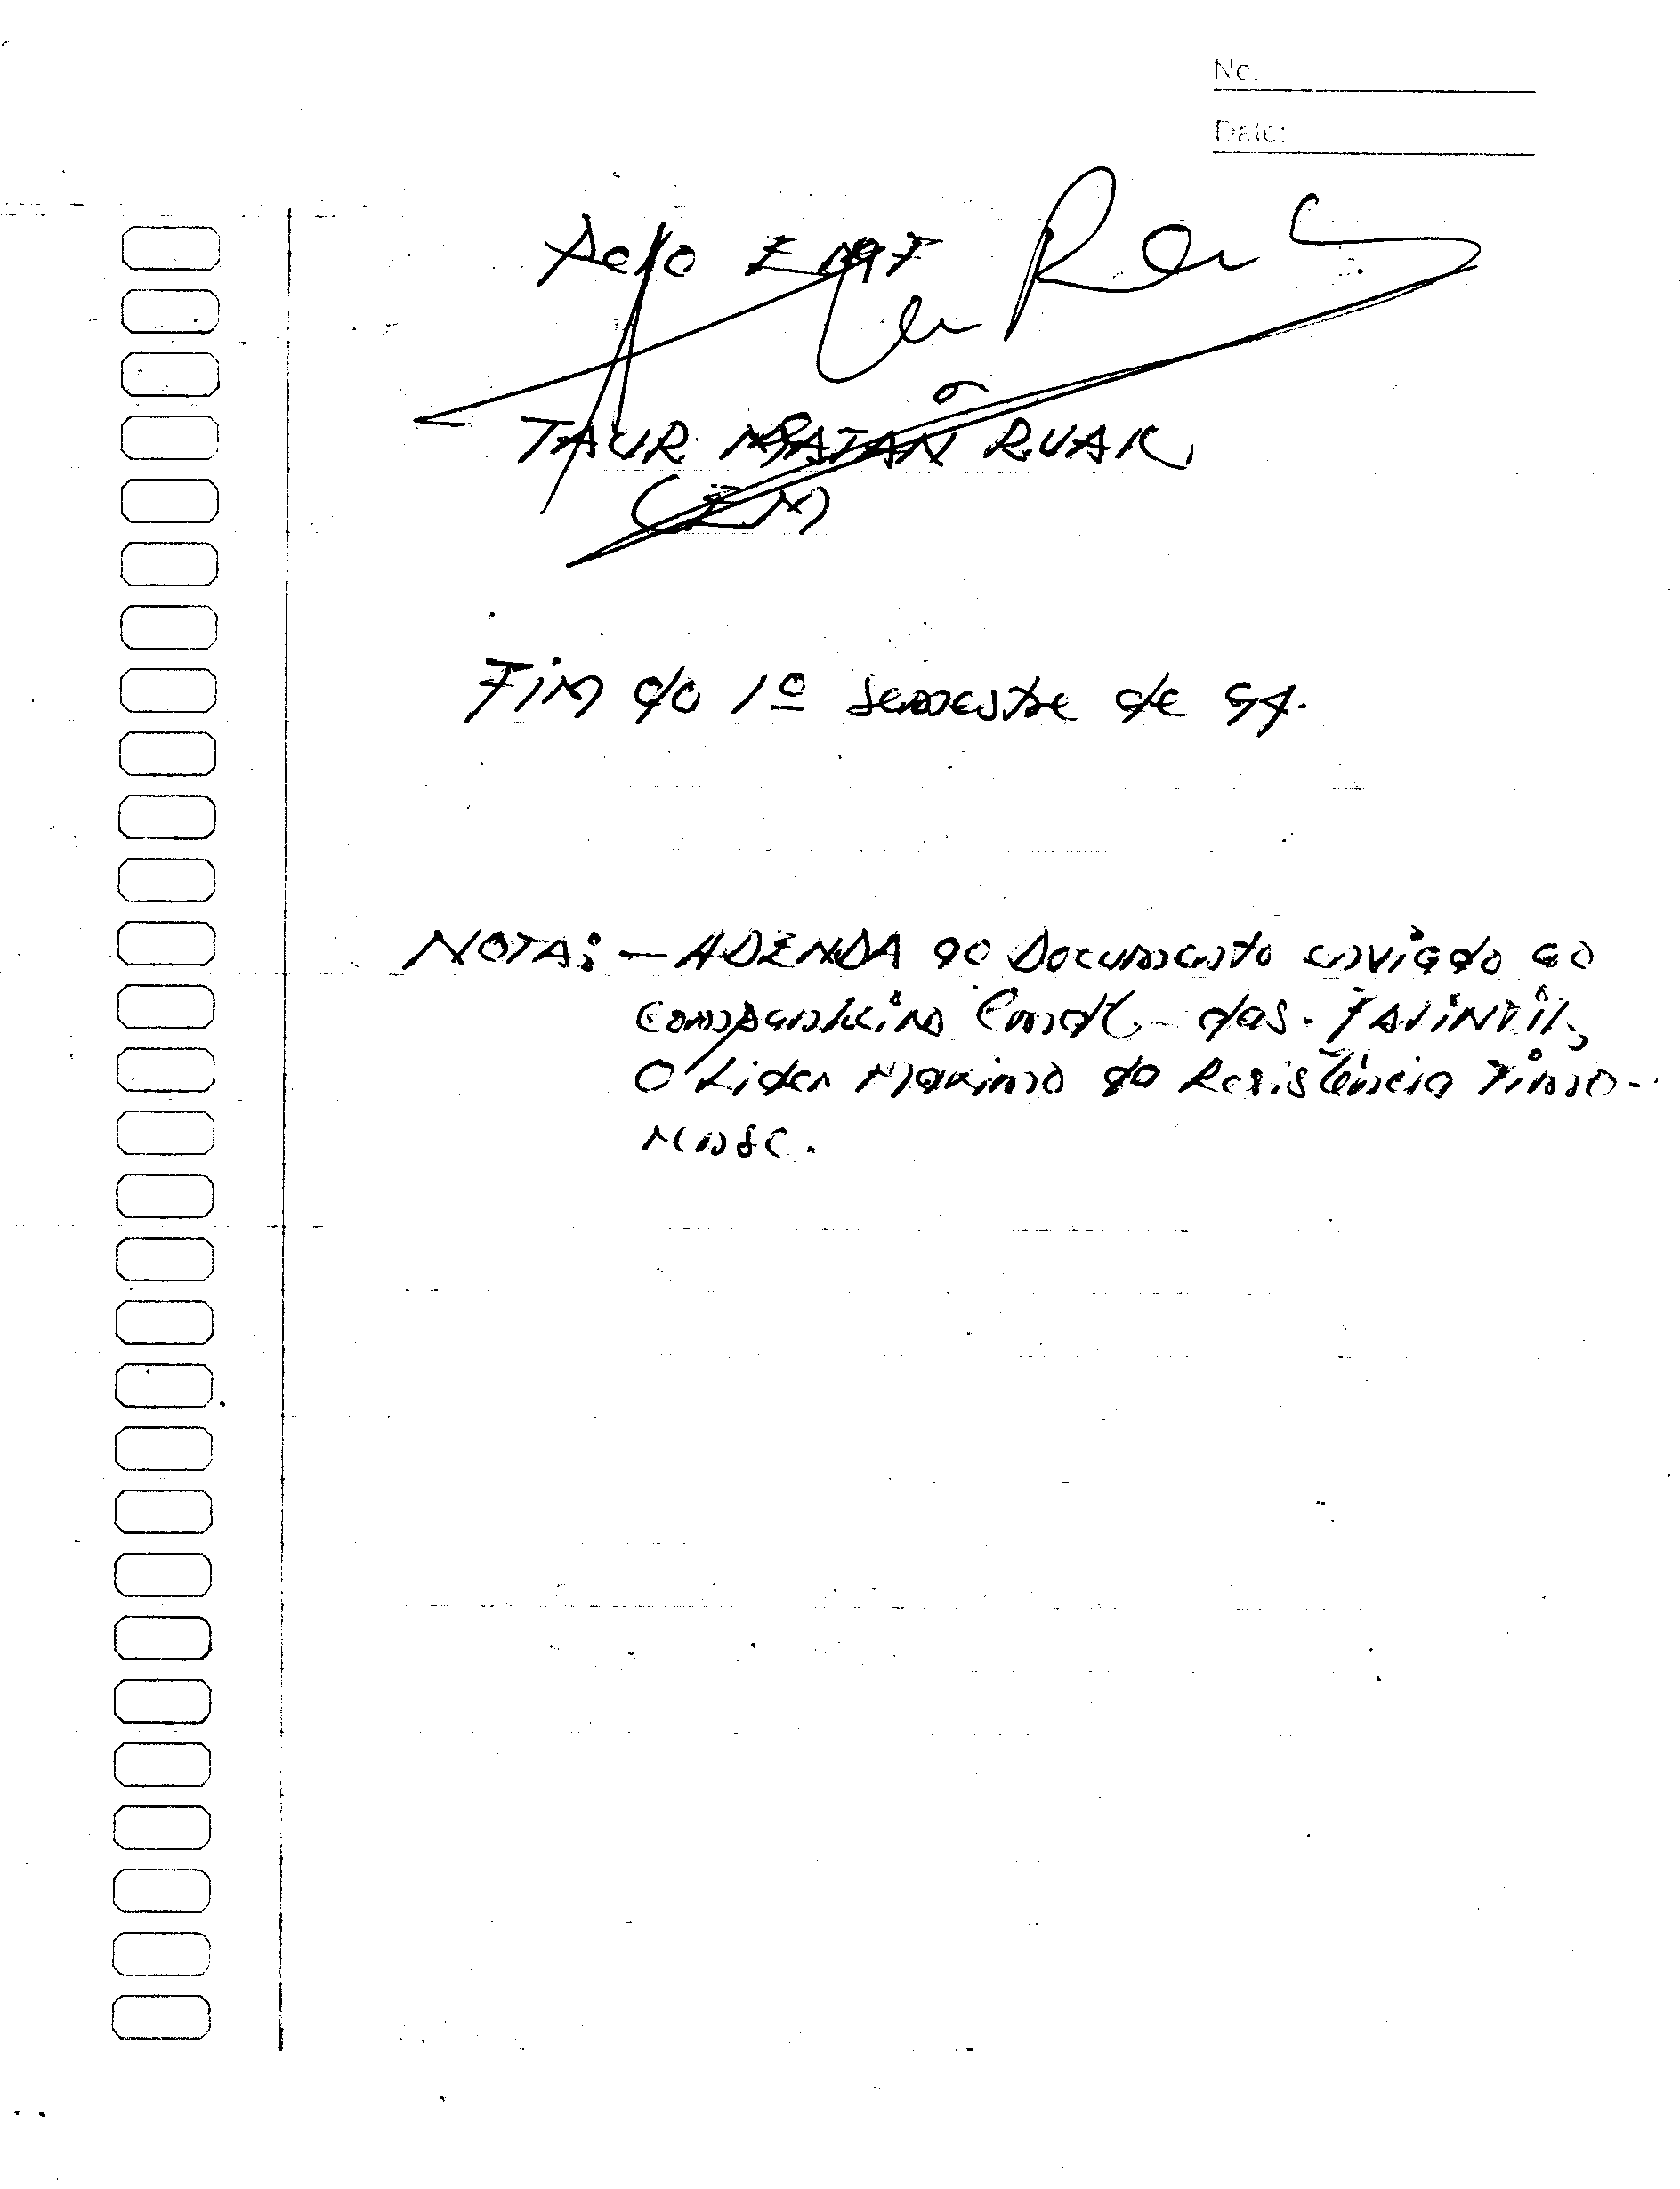 No.
Date:
Pelo EMF
TAUR MATAN RUAK
(CEM)
Fim do 1º semestre de 94.
NOTA: - ADENDA ao Documento enviado ao
Companheiro Comdt- das- FALINTIL,
O Lider Maximo da Resistência Timo-
rense.